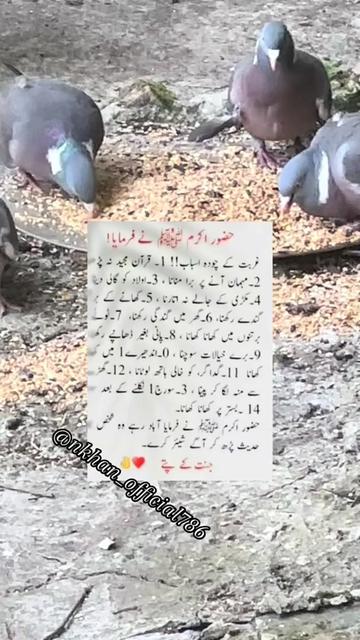 حضور اکرم ﷺ نے فرمایا!
غربت کے چودہ اسباب!! 1۔ قرآن مجید نہ پڑ
2۔ مہمان آنے پر برا منانا، 3۔ اولاد کو گالی دین
4۔ مکڑی کے جالے نہ اتارنا، 5۔ کھانے کے بر
گندے رکھنا، 6۔ گھر میں گندگی رکھنا، 7۔ ٹوٹے
برتنوں میں کھانا کھانا، 8۔ پانی بغیر ڈھانپے رکھ
9۔ برے خیالات سوچنا، 0۔ اندھیرے 1 میں کھ
کھانا 11۔ گداگر کو خالی ہاتھ لوٹانا، 12۔ گھڑ
سے منہ لگا کر پینا، 3۔ سورج 1 نکلنے کے بعد
14۔ بستر پر کھانا کھانا۔
حضور اکرم ﷺ نے فرمایا آباد رہے وہ شخص
حدیث پڑھ کر آگے شیئر کرے۔
جنت کے پتے
@nkhan_official786